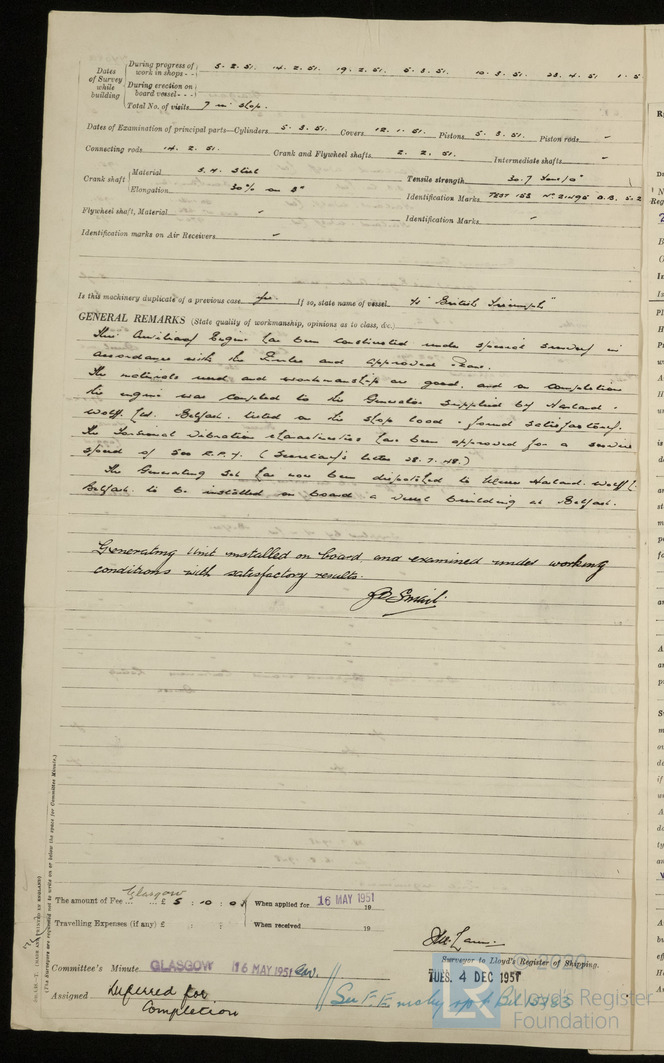 Dates of Survey while building
During progress of work in shops - - 5. 2. 51. 14. 2. 51. 19. 2. 51. 6. 3. 51. 10. 3. 51. 23. 4. 51 1. 5
During erection on board vessel - - -
Total No. of visits 7 in shop.
Dates of Examination of principal parts—Cylinders 5. 3. 51. Covers 12. 1. 51. Pistons 5. 3. 51. Piston rods
Connecting rods 14. 2. 51. Crank and Flywheel shafts 2. 2. 51. Intermediate shafts
Crank shaft Material S.M. Steel Tensile strength 30.7 Tons/□"
Elongation 30% on 3" Identification Marks
Flywheel shaft, Material Identification Marks
Identification marks on Air Receivers
Is this machinery duplicate of a previous case yes If so, state name of vessel "British Triumph"
GENERAL REMARKS (State quality of workmanship, opinions as to class, &c.)
This Auxiliary Engine has been constructed under special survey in
accordance with the Rules and approved Plans.
The materials used and workmanship are good, and on completion
the engine was coupled to the Generator supplied by Harland &
Wolff Ltd. Belfast. tested on the shop load & found satisfactory.
The Torsional Vibration characteristics have been approved for a service
speed of 500 R.P.M. (Secretary's letter 28.7.48.)
The Generating Set has now been dispatched to Messrs Harland & Wolff L.
Belfast. to be installed on board a vessel building at Belfast.
Generating Unit installed on board, and examined under working
conditions with satisfactory results.
The amount of Fee ... Glasgow £ 5 : 10 : 0 When applied for 16 MAY 1951 19
Travelling Expenses (if any) £ : : When received 19
Surveyor to Lloyd's Register of Shipping.
Committee's Minute GLASGOW 16 MAY 1951 TUES. 4 DEC 1951
Assigned Deferred for
Completion
See F.E. mchy rpt
(The Surveyors are requested not to write on or below the space for Committee Minute.)
(MADE AND PRINTED IN ENGLAND)
© 2020
Lloyd's Register
Foundation